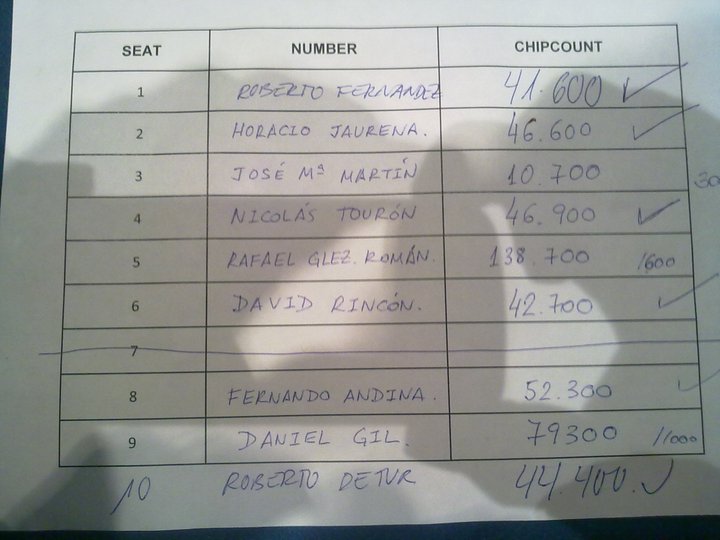 SEAT NUMBER CHIPCOUNT
1 ROBERTO FERNANDEZ 41.600
2 HORACIO JAURENA. 46.600
3 JOSÉ Mª MARTÍN 10.700 30
4 NICOLÁS TOURÓN 46.900
5 RAFAEL GLEZ. ROMÁN. 138.700 /600
6 DAVID RINCÓN. 42.700
7
8 FERNANDO ANDINA. 52.300
9 DANIEL GIL. 79300 //000
10 ROBERTO DETUR 44.400.